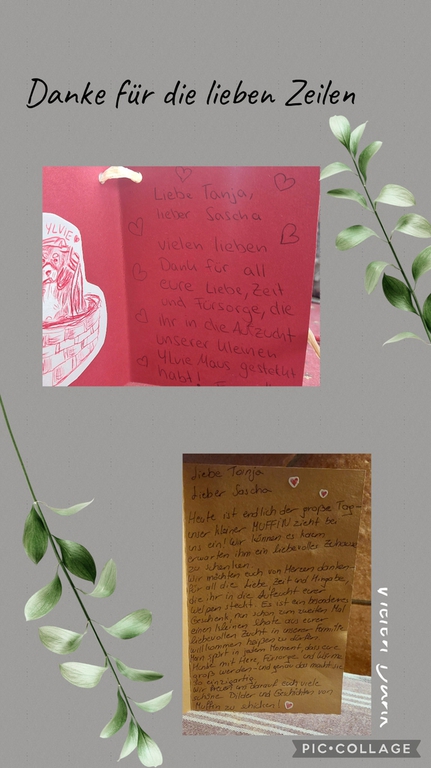 Danke für die lieben Zeilen
YLVIE
Liebe Tanja,
lieber Sascha
vielen lieben
Dank für all
eure Liebe, Zeit
und Fürsorge, die
ihr in die Aufzucht
unserer kleinen
Ylvie Maus gesteckt
habt!
Liebe Tanja
Lieber Sascha
Heute ist endlich der große Tag-
unser kleiner MUFFIN zieht bei
uns ein! Wir können es kaum
erwarten ihm ein liebevolles Zuhause
zu schenken.
Wir möchten euch von Herzen danken
für all die Liebe, Zeit und Hingabe,
die ihr in die Aufzucht eurer
Welpen steckt. Es ist ein besonderes
Geschenk, nun schon zum zweiten Mal
einen kleinen Schatz aus eurer
liebevollen Zucht in unserer Familie
willkommen heißen zu dürfen.
Man spürt in jedem Moment, dass eure
Hunde mit Herz, Fürsorge und Wärme
groß werden - und genau das macht sie
so einzigartig.
Wir freuen uns darauf euch viele
schöne Bilder und Geschichten von
Muffin zu schicken!
Vielen Dank
PIC•COLLAGE